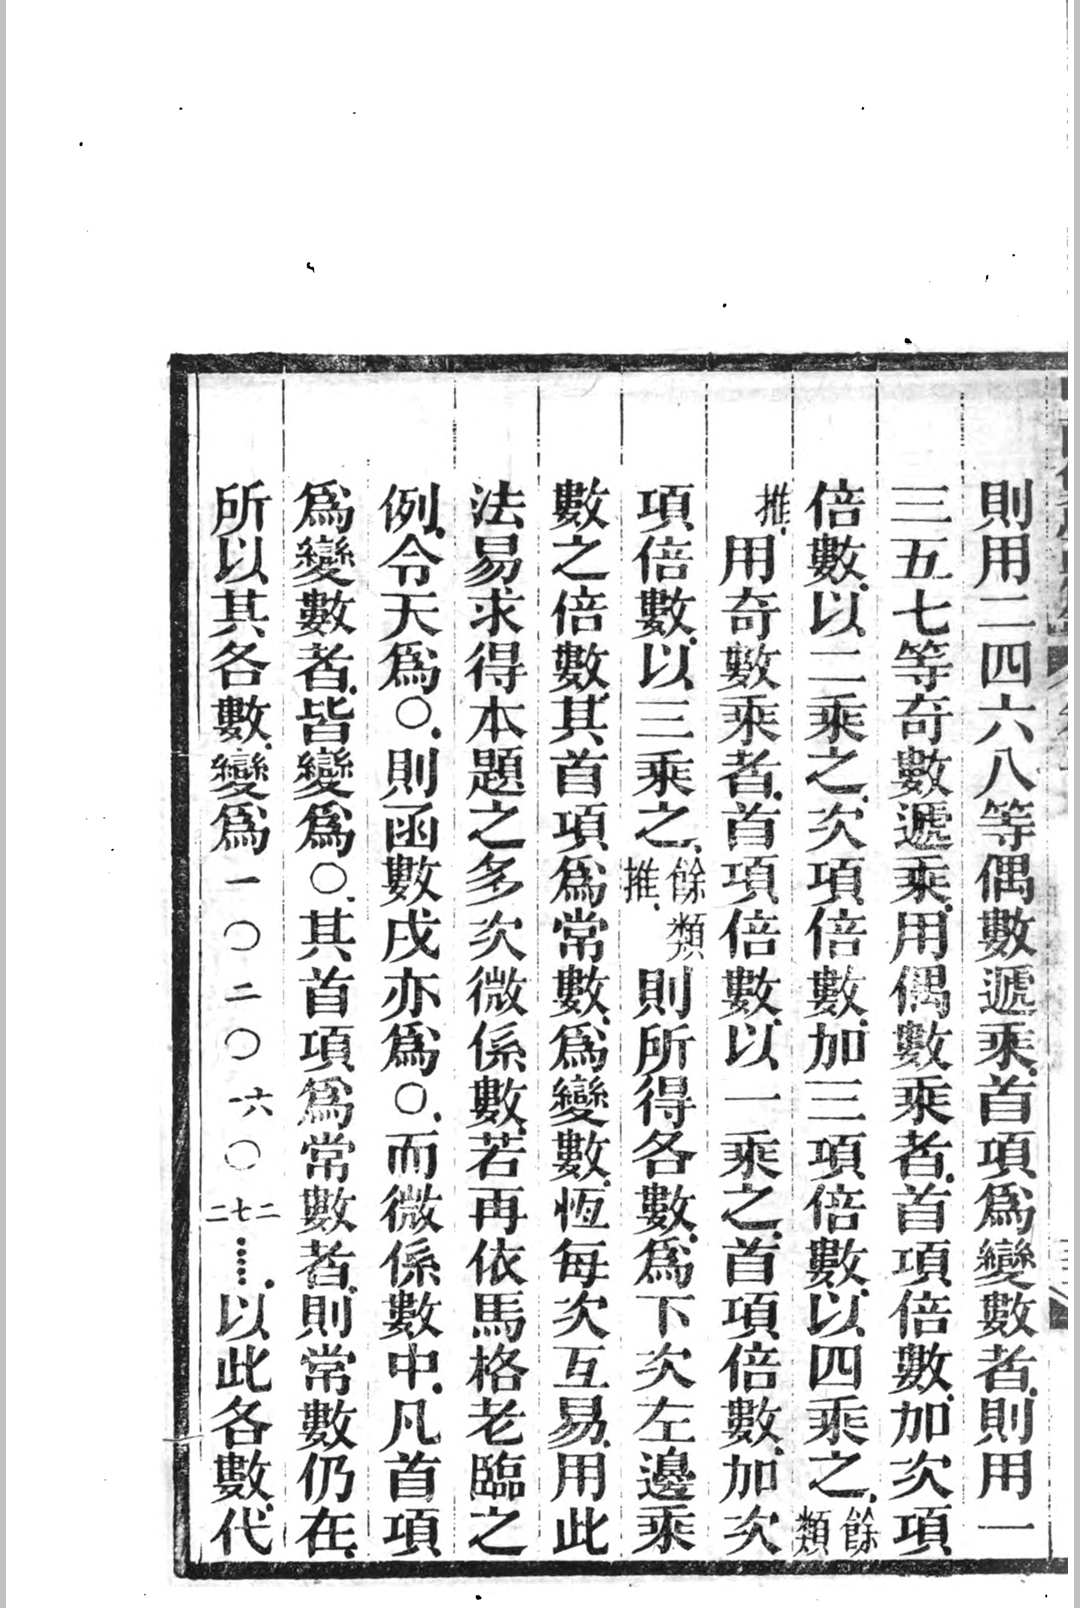 則用二四六八等偶數遞乘、首項爲變數者、則用一
三五七等奇數遞乘、用偶數乘者、首項倍數、加次項
倍數、以二乘之、次項倍數、加三項倍數、以四乘之、餘類
推、用奇數乘者、首項倍數、以一乘之、首項倍數、加次
項倍數、以三乘之、餘類推、則所得各數、爲下次左邊乘
數之倍數、其首項爲常數、爲變數、恆每次互易、用此
法易求得本題之多次微係數、若再依馬格老臨之
例、令天爲〇、則函數戌亦爲〇、而微係數中、凡首項
爲變數者、皆變爲〇、其首項爲常數者、則常數仍在、
所以其各數、變爲一〇二〇一六〇二七二……、以此各數、代